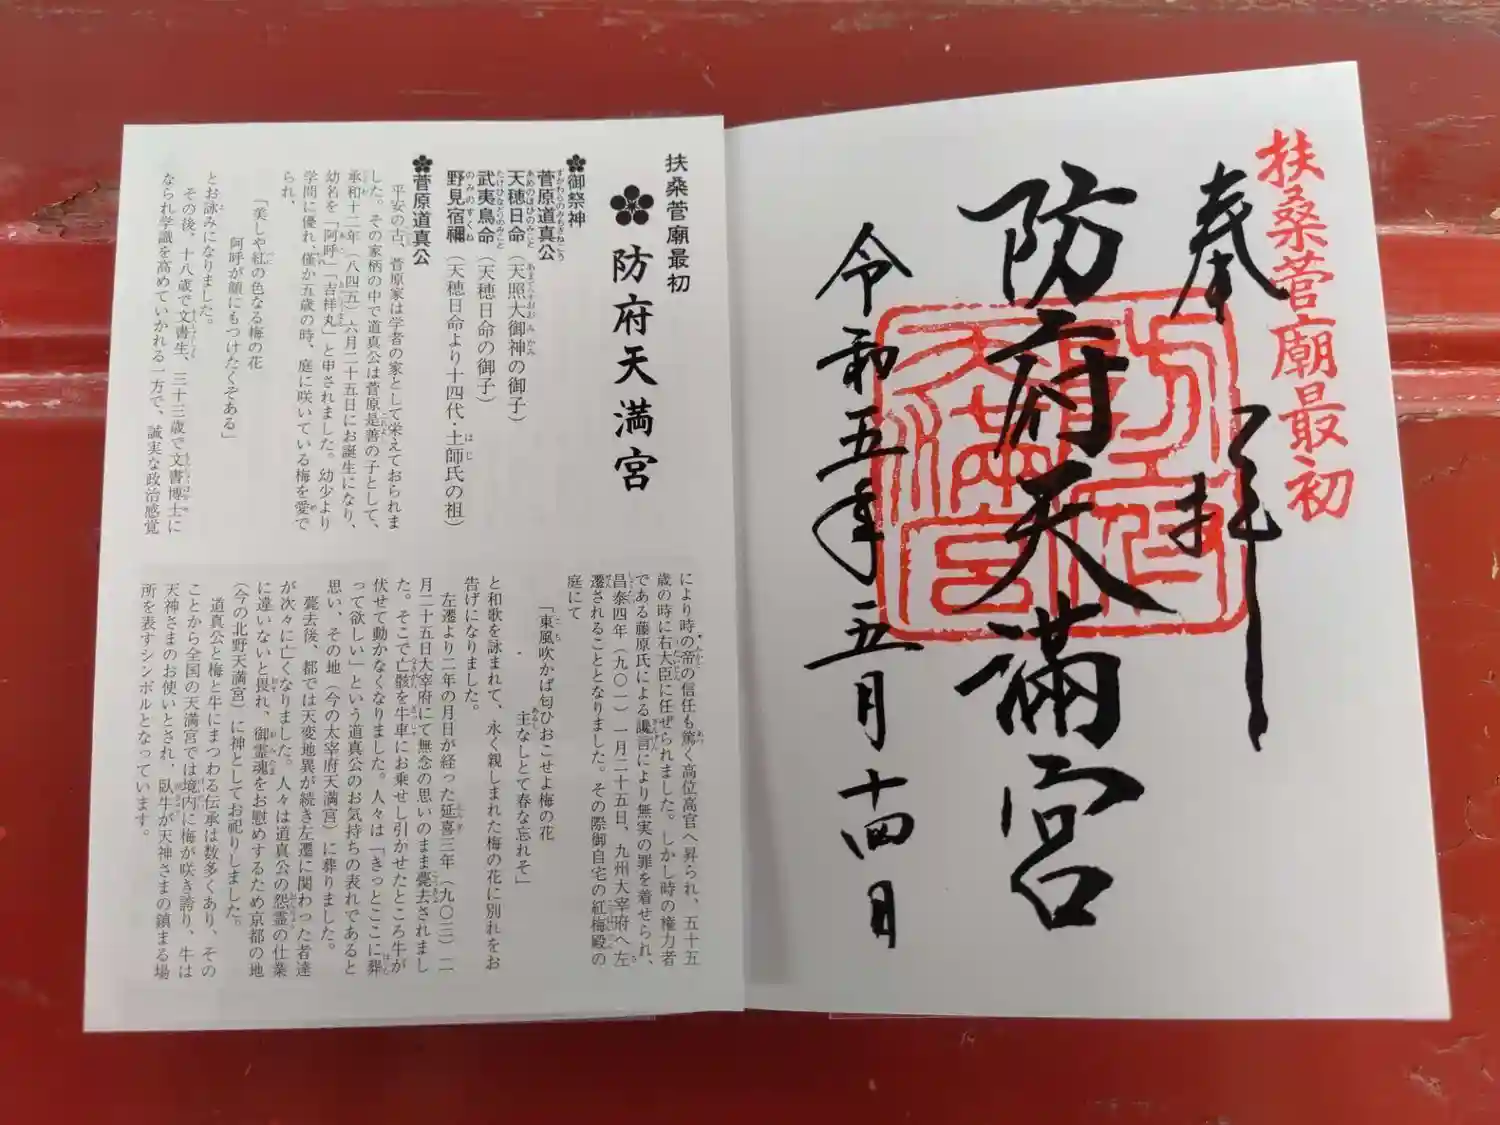 扶桑菅廟最初
奉拝
防府天満宮
令和五年五月十四日
防府天満宮
扶桑菅廟最初
防府天満宮
御祭神
菅原道真公
天穂日命（天照大御神の御子）
武夷鳥命（天穂日命の御子）
野見宿禰（天穂日命より十四代・土師氏の祖）
菅原道真公
平安の古、菅原家は学者の家として栄えておられま
した。その家柄の中で道真公は菅原是善の子として、
承和十二年（八四五）六月二十五日にお誕生になり、
幼名を「阿呼」「吉祥丸」と申されました。幼少より
学問に優れ、僅か五歳の時、庭に咲いている梅を愛で
られ、
「美しや紅の色なる梅の花
阿呼が顔にもつけたくぞある」
とお詠みになりました。
その後、十八歳で文章生、三十三歳で文章博士に
なられ学識を高めていかれる一方で、誠実な政治感覚
により時の帝の信任も篤く高位高官へ昇られ、五十五
歳の時に右大臣に任ぜられました。しかし時の権力者
である藤原氏による讒言により無実の罪を着せられ、
昌泰四年（九〇一）一月二十五日、九州大宰府へ左
遷されることとなりました。その際御自宅の紅梅殿の
庭にて
「東風吹かば匂ひおこせよ梅の花
主なしとて春な忘れそ」
と和歌を詠まれて、永く親しまれた梅の花に別れをお
告げになりました。
左遷より二年の月日が経った延喜三年（九〇三）二
月二十五日大宰府にて無念の思いのまま薨去されまし
た。そこで亡骸を牛車にお乗せし引かせたところ牛が
伏せて動かなくなりました。人々は「きっとここに葬
って欲しい」という道真公のお気持ちの表れであると
思い、その地（今の太宰府天満宮）に葬りました。
薨去後、都では天変地異が続き左遷に関わった者達
が次々に亡くなりました。人々は道真公の怨霊の仕業
に違いないと畏れ、御霊魂をお慰めするため京都の地
（今の北野天満宮）に神としてお祀りしました。
道真公と梅と牛にまつわる伝承は数多くあり、その
ことから全国の天満宮では境内に梅が咲き誇り、牛は
天神さまのお使いとされ、臥牛が天神さまの鎮まる場
所を表すシンボルとなっています。